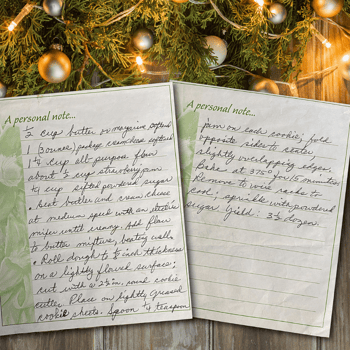 A personal note...
1/2 cup butter or margarine softened
1 (3 ounce) package cream cheese softened
1 1/4 cup all-purpose flour
about 1/2 cup strawberry jam
1/4 cup sifted powdered sugar
• Beat butter and cream cheese
at medium speed with an electric
mixer until creamy. Add flour
to butter mixture, beating well.
• Roll dough to 1/8 inch thickness
on a lightly floured surface;
cut with a 2 1/2 in. round cookie
cutter. Place on lightly greased
cookie sheets. Spoon 1/4 teaspoon
A personal note...
jam on each cookie; fold
opposite sides to center
slightly overlapping edges.
Bake at 375° for 15 minutes
Remove to wire racks to
cool; sprinkle with powdered
sugar. Yield: 3 1/2 dozen.